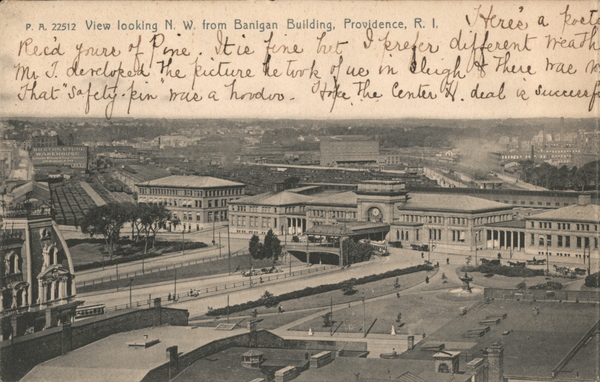 P. R. 22512 View looking N. W. from Banigan Building, Providence, R. I.
Here's a
Recd yours of Pine. It is fine but I prefer different
Mr T. developed the picture he took of us in sleigh & there was
That "safety-pin" was a hoodoo. Hope the Center H. deal is
WAREHOUSE